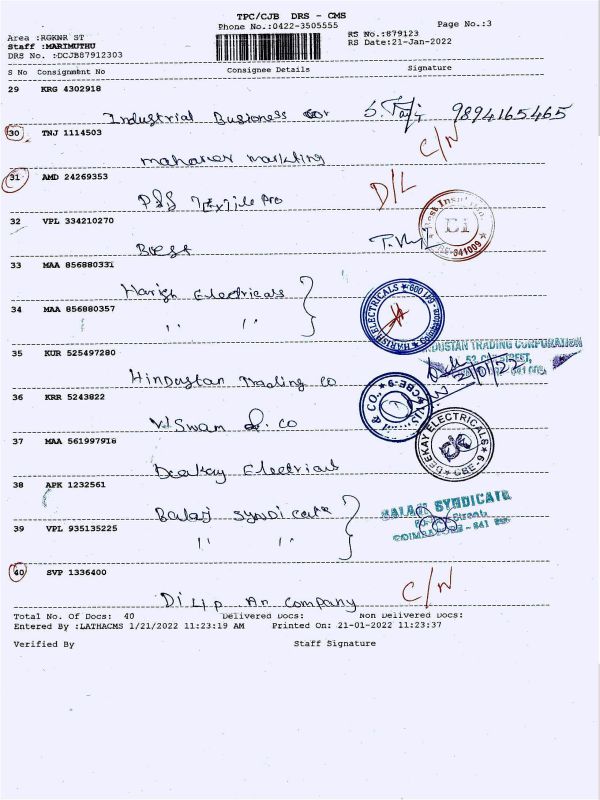 TPC/CJB DRS - CMS
Phone No.:0422-3505555
Page No.:3
Area :RGKNR ST
Staff :MARIMUTHU
DRS No. :DCJB87912303
RS No.:879123
RS Date:21-Jan-2022
S No Consignment No Consignee Details Signature
29 KRG 4302918
Industrial Business 9894165465
30 TNJ 1114503
C/N
marketing
31 AMD 24269353
D/L
PSS Textile Pro
32 VPL 334210270
Best
641009
33 MAA 856880331
Harish Electricals
HARISH ELECTRICALS
34 MAA 856880357
" "
35 KUR 525497280
HINDUSTAN TRADING CORPORATION
Hindustan Trading Co
36 KRR 5243822
& CO., CBE-9
V. Swan & Co
37 MAA 561997918
DEEKAY ELECTRICALS CBE-9
Deekay Electricals
38 APK 1232561
Balaji Syndicate
BALAJI SYNDICATE
Street,
COIMBATORE - 641
39 VPL 935135225
" "
40 SVP 1336400
C/N
Company
Total No. Of Docs: 40 Delivered Docs: Non Delivered Docs:
Entered By :LATHACMS 1/21/2022 11:23:19 AM Printed On: 21-01-2022 11:23:37
Verified By Staff Signature